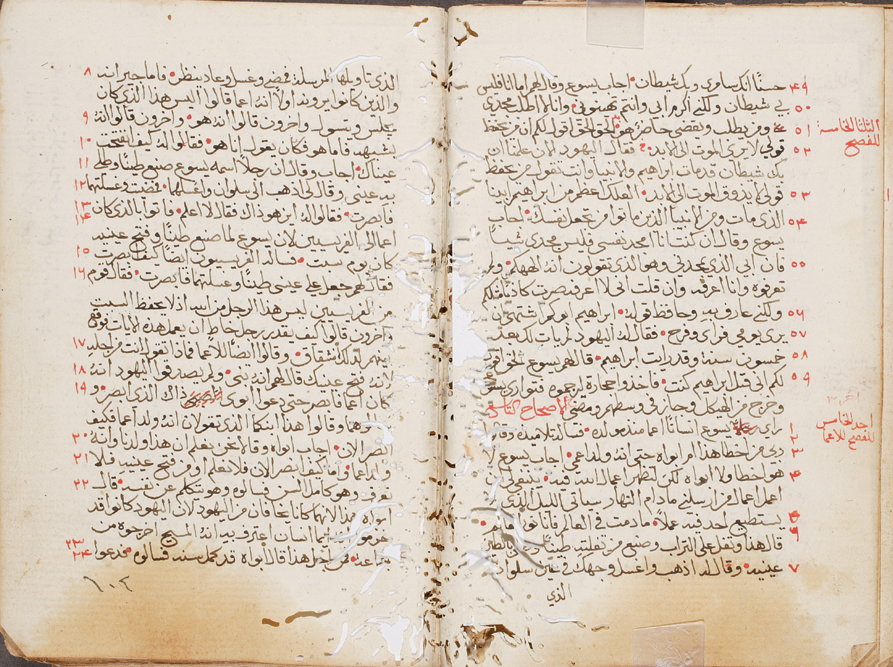 ٤٩ حسنًا انك سامري وبك شيطان اجاب يسوع وقال لهم اما انا فليس
٥٠ بي شيطان ولكني اكرم ابي وانتم تهينوني وانا لا اطلب مجدي
٥١ ومن يطلب ويقضي حاضر هو الحق الحق اقول لكم ان من يحفظ
الثلثا الخامسة للفصح
٥٢ قولي لا يرى الموت الى الابد فقال اليهود الان علمنا ان
بك شيطان قد مات ابراهيم والانبيا وانت تقول من يحفظ
٥٣ قولي لا يذوق الموت الى الابد العلك اعظم من ابراهيم ابينا
٥٤ الذي مات ومن الانبيا الذين ماتوا من تجعل نفسك اجاب
يسوع وقال ان كنت انا امجد نفسي فليس مجدي شيئًا
٥٥ فان ابي الذي يمجدني وهو الذي تقولون انه الهكم ولم
تعرفوه وانا اعرفه وان قلت اني لا اعرفه صرت كاذبًا مثلكم
٥٦ ولكني عارف به وحافظ قوله ابراهيم ابوكم اشتهى ان
٥٧ يرى يومي فراى وفرح فقال له اليهود لم يات لك بعد
٥٨ خمسون سنة وقد رايت ابراهيم قال لهم يسوع الحق اقول
٥٩ لكم اني قبل ابراهيم كنت فاخذوا حجارة ليرجموه فتوارى يسوع
وخرج من الهيكل وجاز في وسطهم ومضى الاصحاح التاسع
احد الخامس للفصح للاعما
١ راى يسوع انسانًا اعما منذ مولده
٢ فساله تلاميذه وقالوا
٣ من اخطا هذا ام ابواه حتى انه ولد اعمي اجاب يسوع لا
٤ هو اخطا ولا ابواه لكن لتظهر اعمال الله فيه ينبغي لي ان
اعمل اعمال من ارسلني مادام النهار سياتي الليل الذي لا
٥ يستطيع احد فيه عملاً مادمت في العالم فانا نور العالم
٦ قال هذا وتفل على التراب وصنع من تفلته طينًا وطلى بالطين
٧ عينيه وقال له اذهب واغسل وجهك في عين سلوان
الذي
الذي تاويلها المرسلة فمضى وغسل وعاد ينظر فاما جيرانه ٨
والذين كانوا يرونه اولاً انه اعما قالوا اليس هذا الذي كان
يجلس ويتسول واخرون قالوا انه هو واخرون قالوا انه ٩
يشبهه فاما هو فكان يقول انا هو فقالوا له كيف انفتحت ١٠
عيناك اجاب وقال ان رجلاً اسمه يسوع صنع طينًا وطلى ١١
به عيني وقال لي اذهب الى سلوان واغسلهما فمضيت وغسلتهما ١٢
فابصرت فقالوا له اين هو ذاك فقال لا اعلم فاتوا بالذي كان ١٣
اعما الى الفريسيين لان يسوع لما صنع طينًا وفتح عينيه ١٤
كان يوم سبت فساله الفريسيون ايضًا كيف ابصرت ١٥
فقال لهم جعل على عيني طينًا وغسلتهما فابصرت فقال قوم ١٦
من الفريسيين ليس هذا الرجل من الله اذ لا يحفظ السبت
واخرون قالوا كيف يقدر رجل خاطٍ ان يعمل هذه الايات فوقع
بينهم لذلك شقاق وقالوا ايضًا للاعما فماذا تقول انت من اجله ١٧
لانه فتح عينيك قال لهم انه نبي ولم يصدقوا اليهود انه ١٨
كان اعما فابصر حتى دعوا ابوي ذاك الذي ابصر ١٩
وسالوهما وقالوا هذا ابنكما الذي تقولان انه ولد اعما فكيف
ابصر الان اجاب ابواه وقالا نحن نعلم ان هذا ولدنا وانه ٢٠
ولد اعما واما كيف ابصر الان فلا نعلم او من فتح عينيه فلا ٢١
نعرف وهو كامل السن فسالوه وهو يتكلم عن نفسه قال ٢٢
ابواه هذا لانهما كانا يخافان من اليهود لان اليهود كانوا قد
حرموا ايما انسان اعترف به انه المسيح اخرجوه من
الجماعة من اجل هذا قال ابواه قد كمل سنه فسالوه فدعوا ٢٣ ٢٤
١٠٢